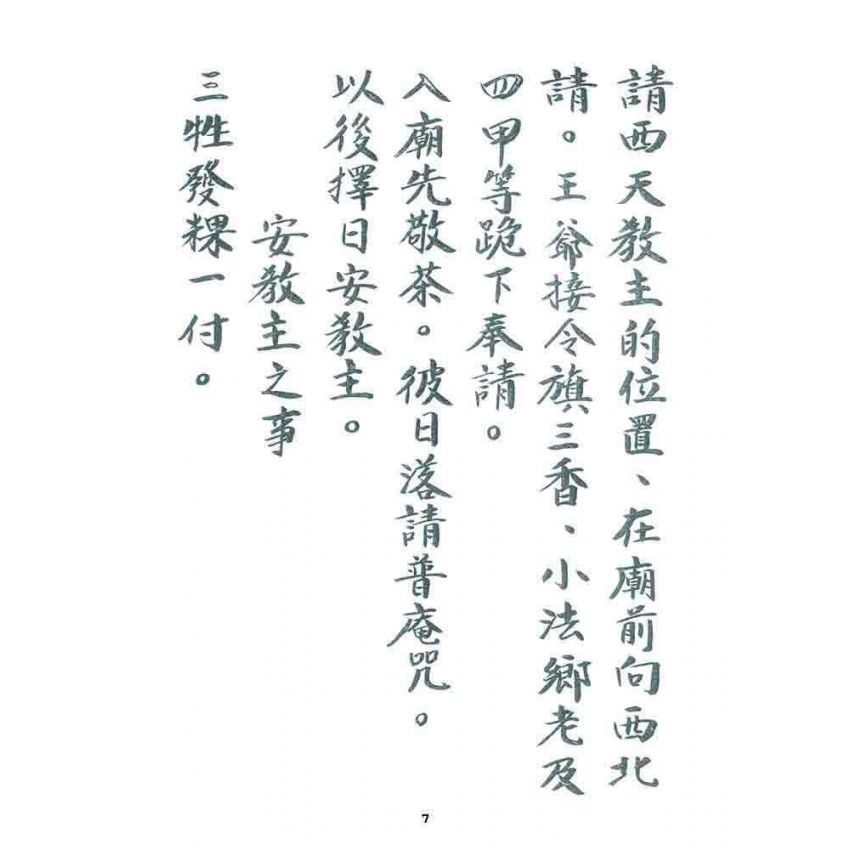 請西天教主的位置、在廟前向西北
請。王爺接令旗三香、小法鄉老及
四甲等跪下奉請。
入廟先敬茶。彼日落請普庵咒。
以後擇日安教主。
安教主之事
三牲發粿一付。
7